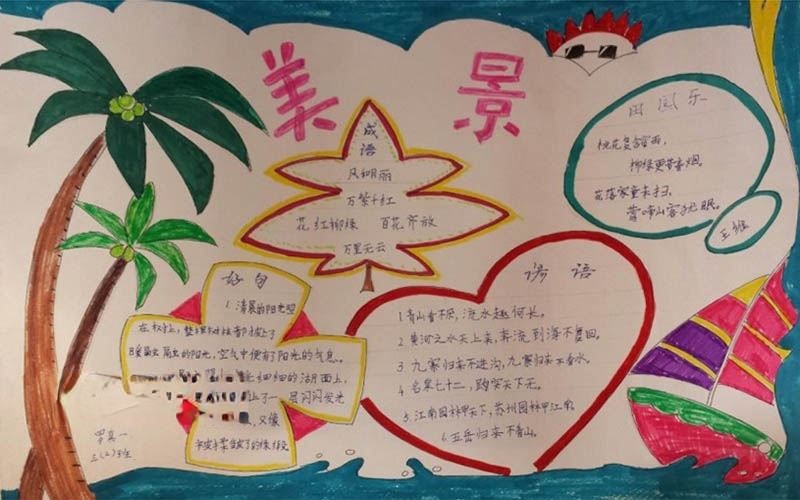 美景
成语
风和日丽
万紫千红
花红柳绿 百花齐放
万里无云
田园乐
桃花复含宿雨,
柳绿更带春烟。
花落家童未扫,
莺啼山客犹眠。
王维
谚语
1 青山看不厌,流水趣何长。
2 黄河之水天上来,奔流到海不复回。
3 九寨归来不进沟,九寨归来不看水。
4 名泉七十二,趵突天下无。
5、江南园林甲天下,苏州园林甲江南。
6.五岳归来不看山。
好句
1.清晨的阳光照
在树上,整棵树枝都披上了
暖融融的阳光,空气中便有了阳光的气息。
细细的湖面上,
上了一层闪闪发光
,又像
罗真一
三(2)班